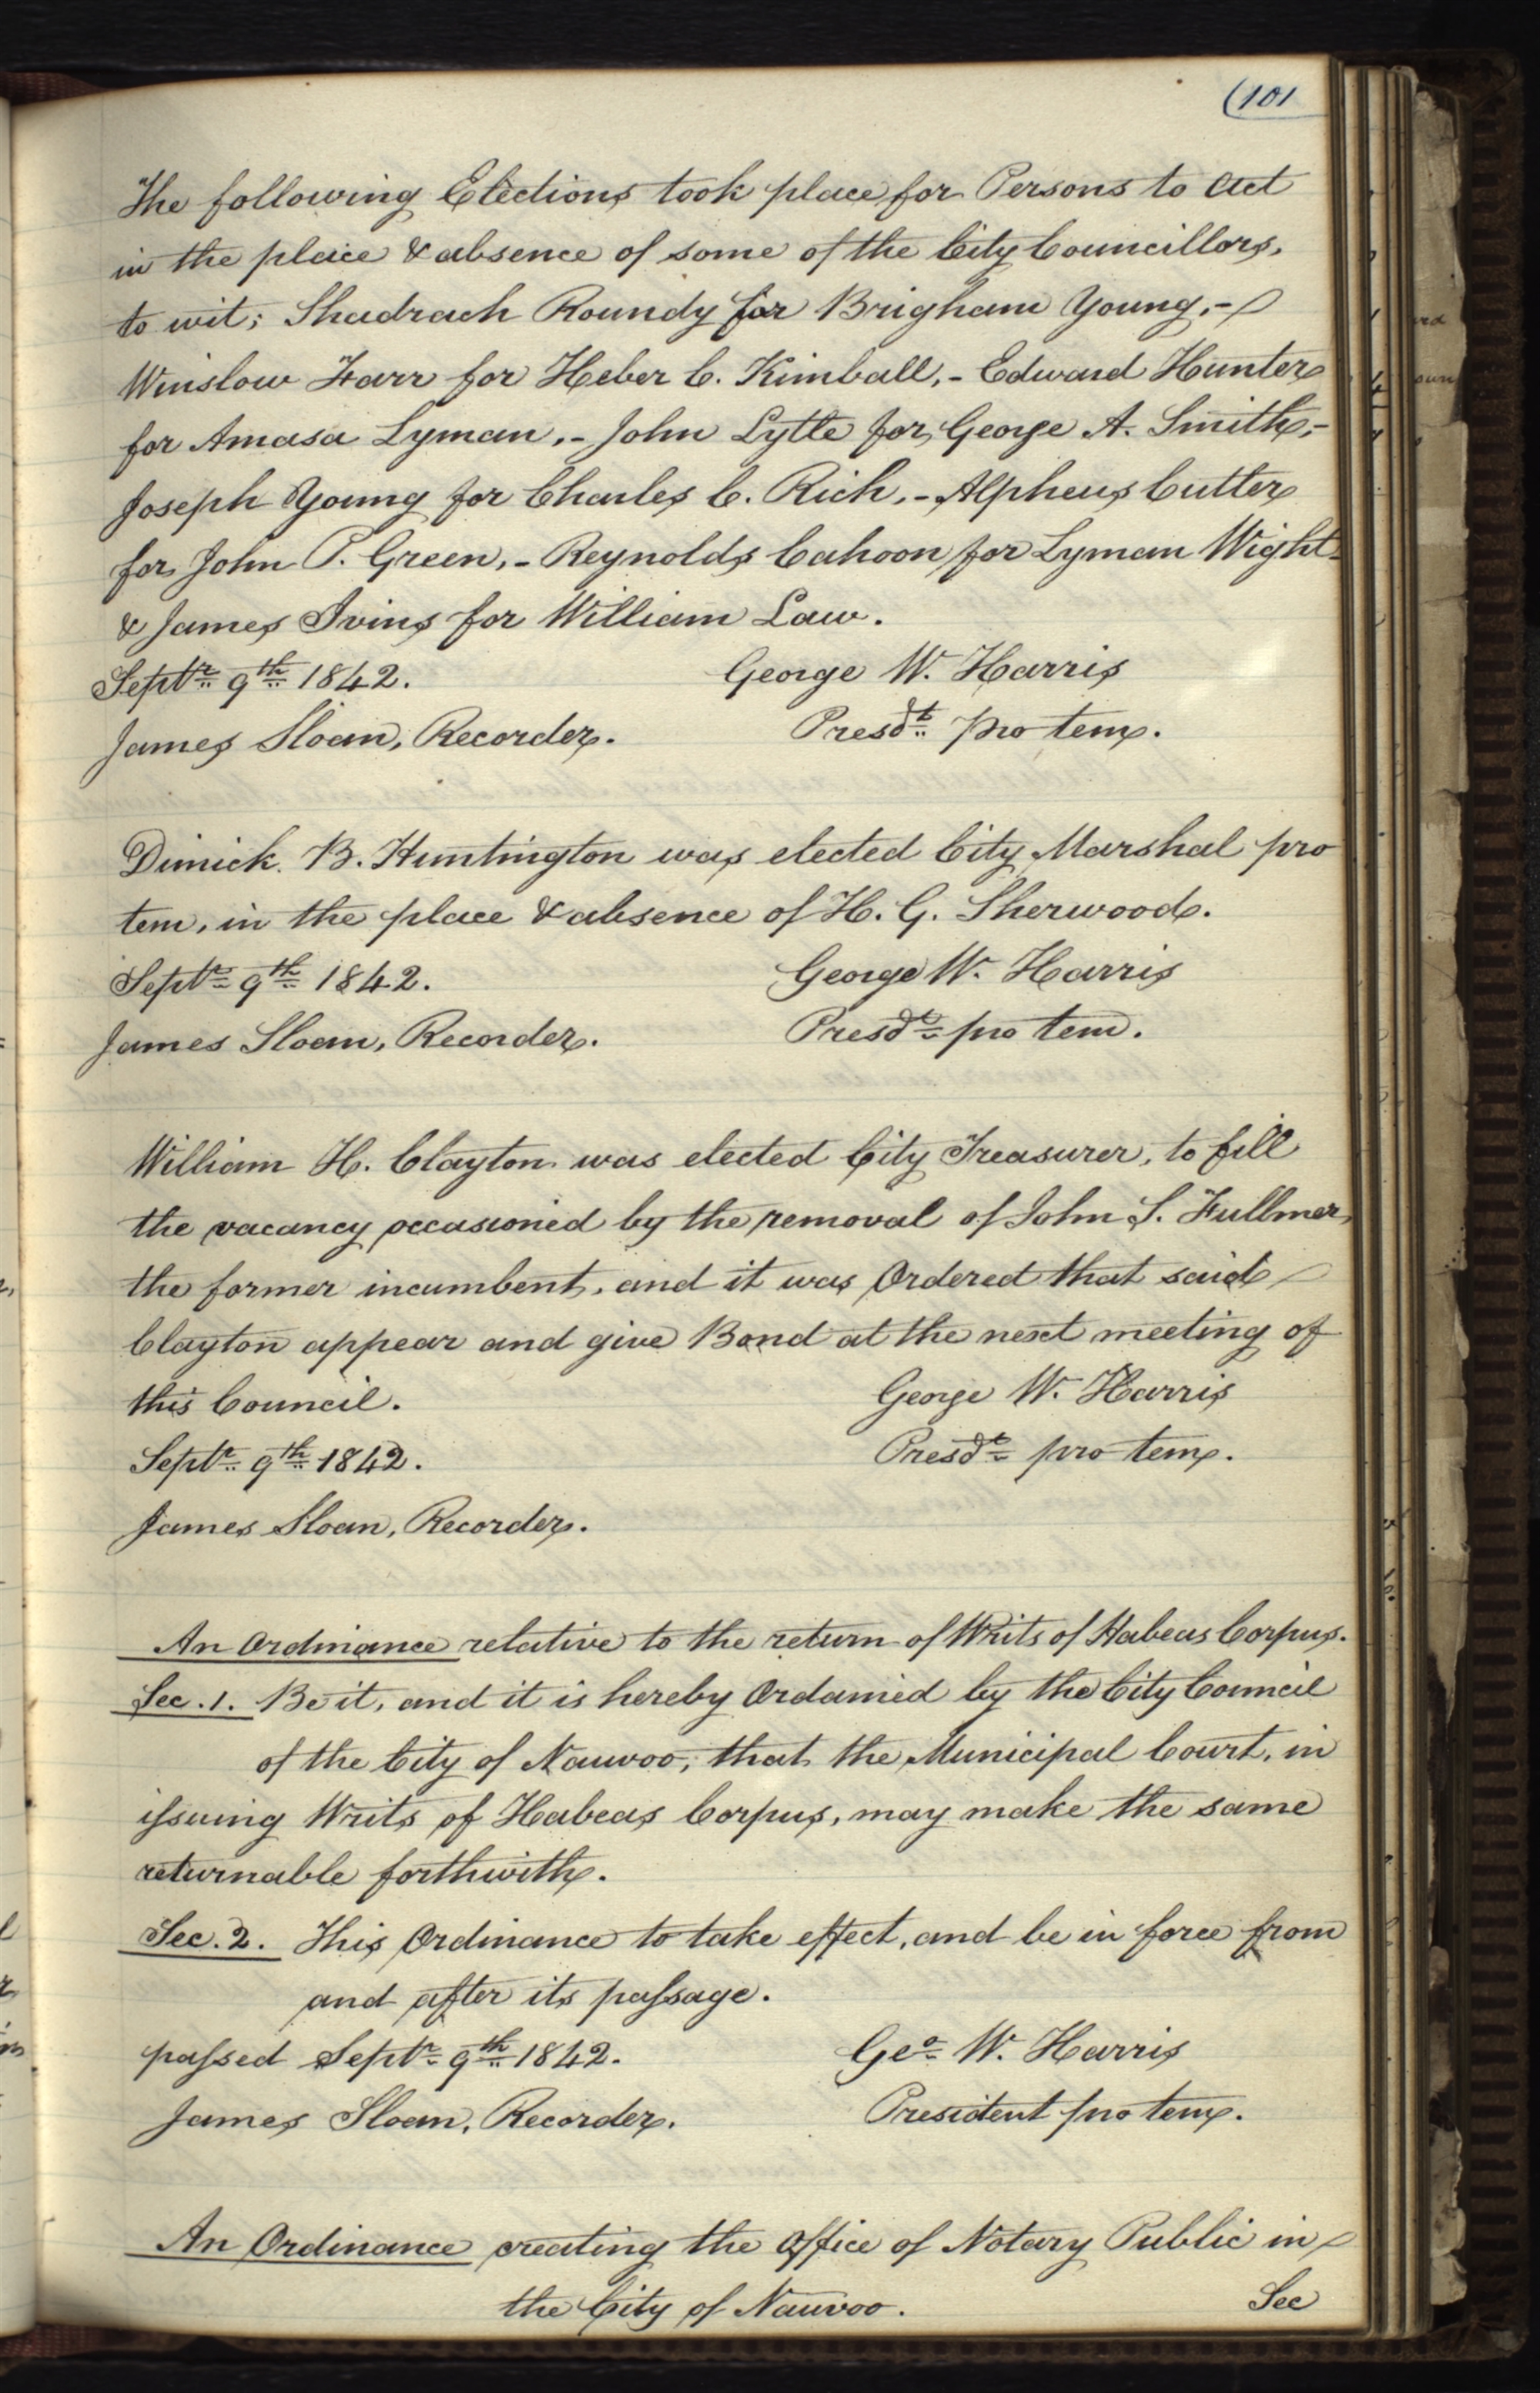 (101
The following Elections took place for Persons to Act
in the place & absence of some of the City Councillors,
to wit; Shadrach Roundy for Brigham Young,-
Winslow Farr for Heber C. Kimball,- Edward Hunter
for Amasa Lyman,- John Lytle for George A. Smith,-
Joseph Young for Charles C. Rich,- Alpheus Cutler
for John P. Green,- Reynolds Cahoon for Lyman Wight-
& James Ivins for William Law.
Septr. 9th. 1842.
George W. Harris
James Sloan, Recorder.
Presdt. pro tem.
Dimick. B. Huntington was elected City Marshal pro
tem, in the place & absence of H. G. Sherwood.
Septr. 9th. 1842.
George W. Harris
James Sloan, Recorder.
Presdt. pro tem.
William H. Clayton was elected City Treasurer, to fill
the vacancy occasioned by the removal of John S. Fullmer,
the former incumbent, and it was Ordered that said
Clayton appear and give Bond at the next meeting of
this Council.
George W. Harris
Septr. 9th. 1842.
Presdt. pro tem.
James Sloan, Recorder.
An Ordinance relative to the return of Writs of Habeas Corpus.
Sec. 1. Be it, and it is hereby Ordained by the City Council
of the City of Nauvoo, that the Municipal Court, in
issuing Writs of Habeas Corpus, may make the same
returnable forthwith.
Sec. 2. This Ordinance to take effect, and be in force from
and after its passage.
passed Septr. 9th. 1842.
Geo. W. Harris
James Sloan, Recorder.
President pro tem.
An Ordinance creating the Office of Notary Public in
the City of Nauvoo.
Sec